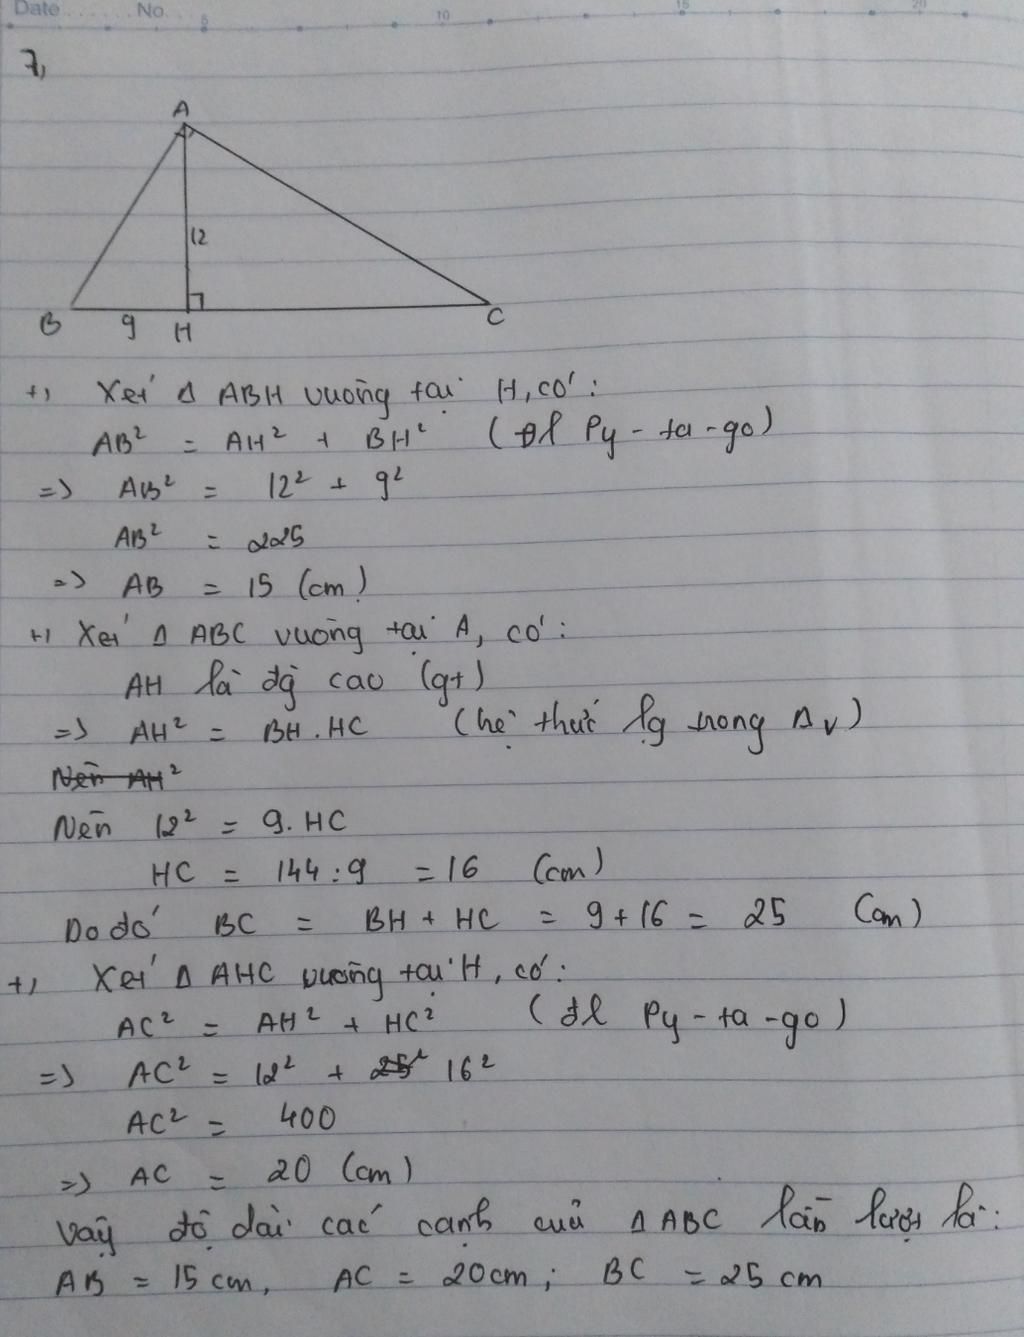 Date No.
5 10 15 20
7,
A
12
B 9 H C
+, Xét Δ ABH vuông tại H, có:
AB² = AH² + BH² (đl Py-ta-go)
=> AB² = 12² + 9²
AB² = 225
=> AB = 15 (cm)
+, Xét Δ ABC vuông tại A, có:
AH là đg cao (gt)
=> AH² = BH.HC (hệ thức lg trong Δv)
Nên AH²
Nên 12² = 9.HC
HC = 144:9 = 16 (cm)
Do đó BC = BH + HC = 9 + 16 = 25 (cm)
+, Xét Δ AHC vuông tại H, có:
AC² = AH² + HC² (đl Py-ta-go)
=> AC² = 12² + 25² 16²
AC² = 400
=> AC = 20 (cm)
Vậy độ dài các cạnh của Δ ABC lần lượt là:
AB = 15 cm, AC = 20cm; BC = 25 cm